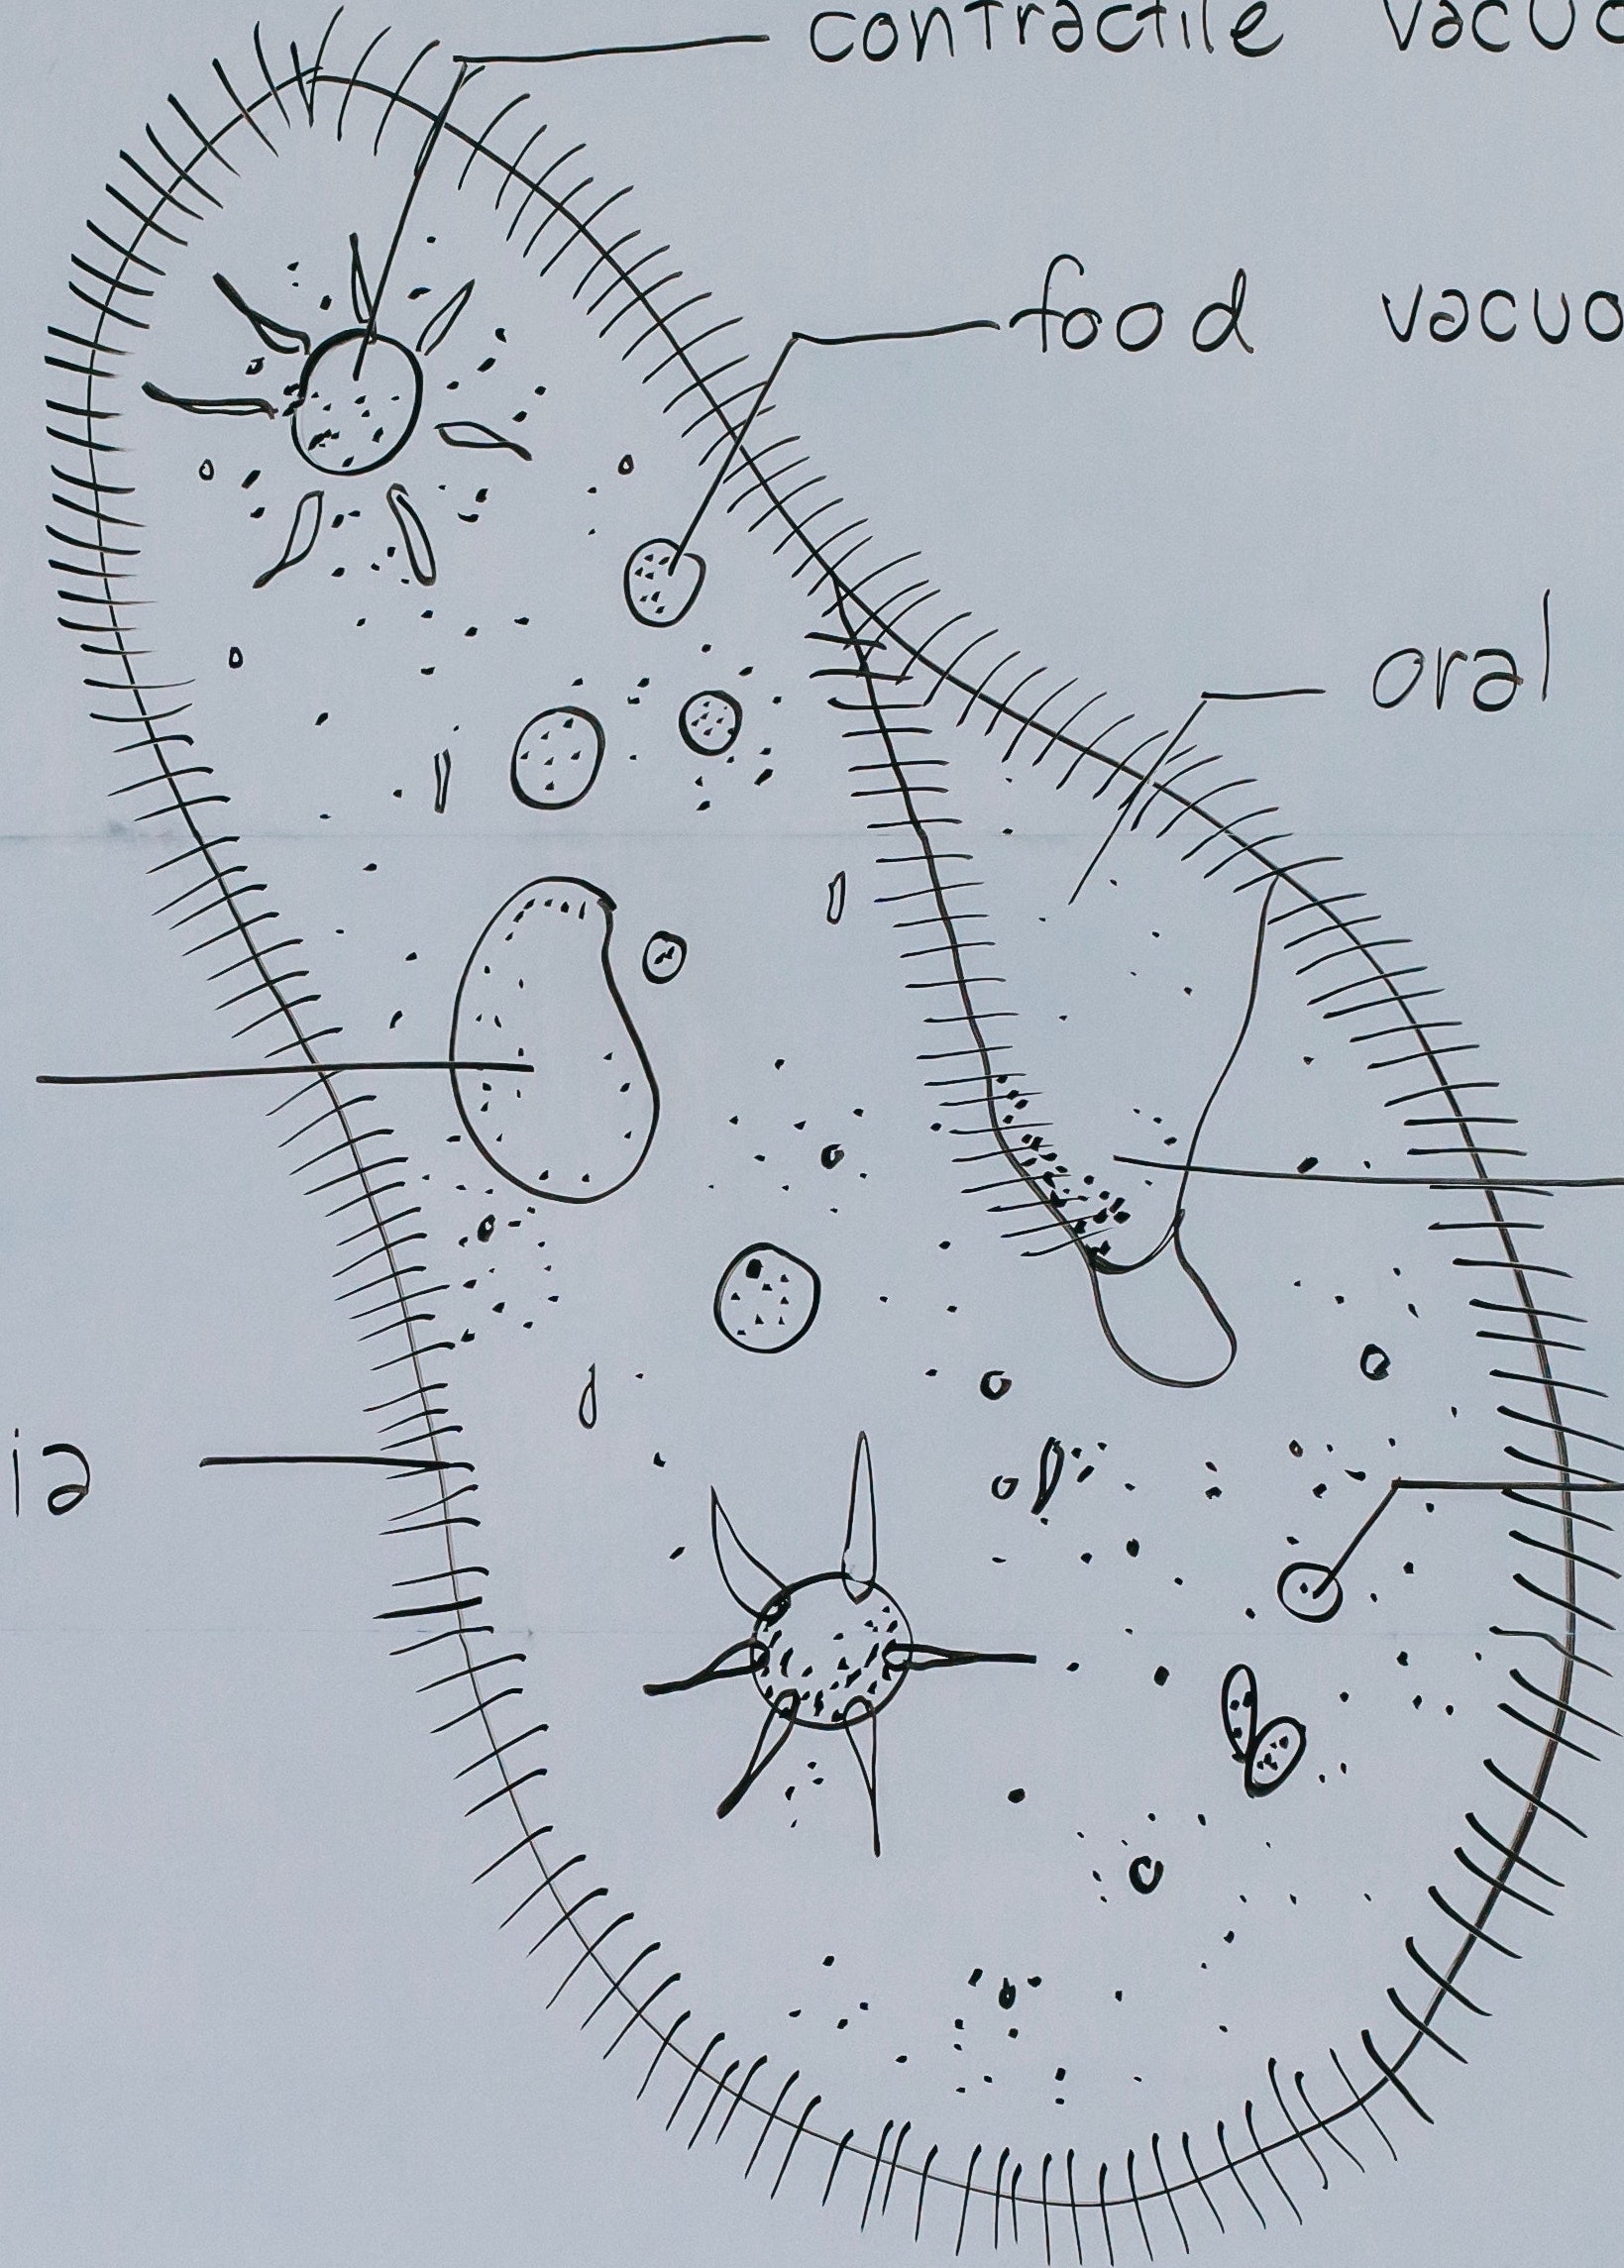 contractile vacuo
food vacuo
oral
ia